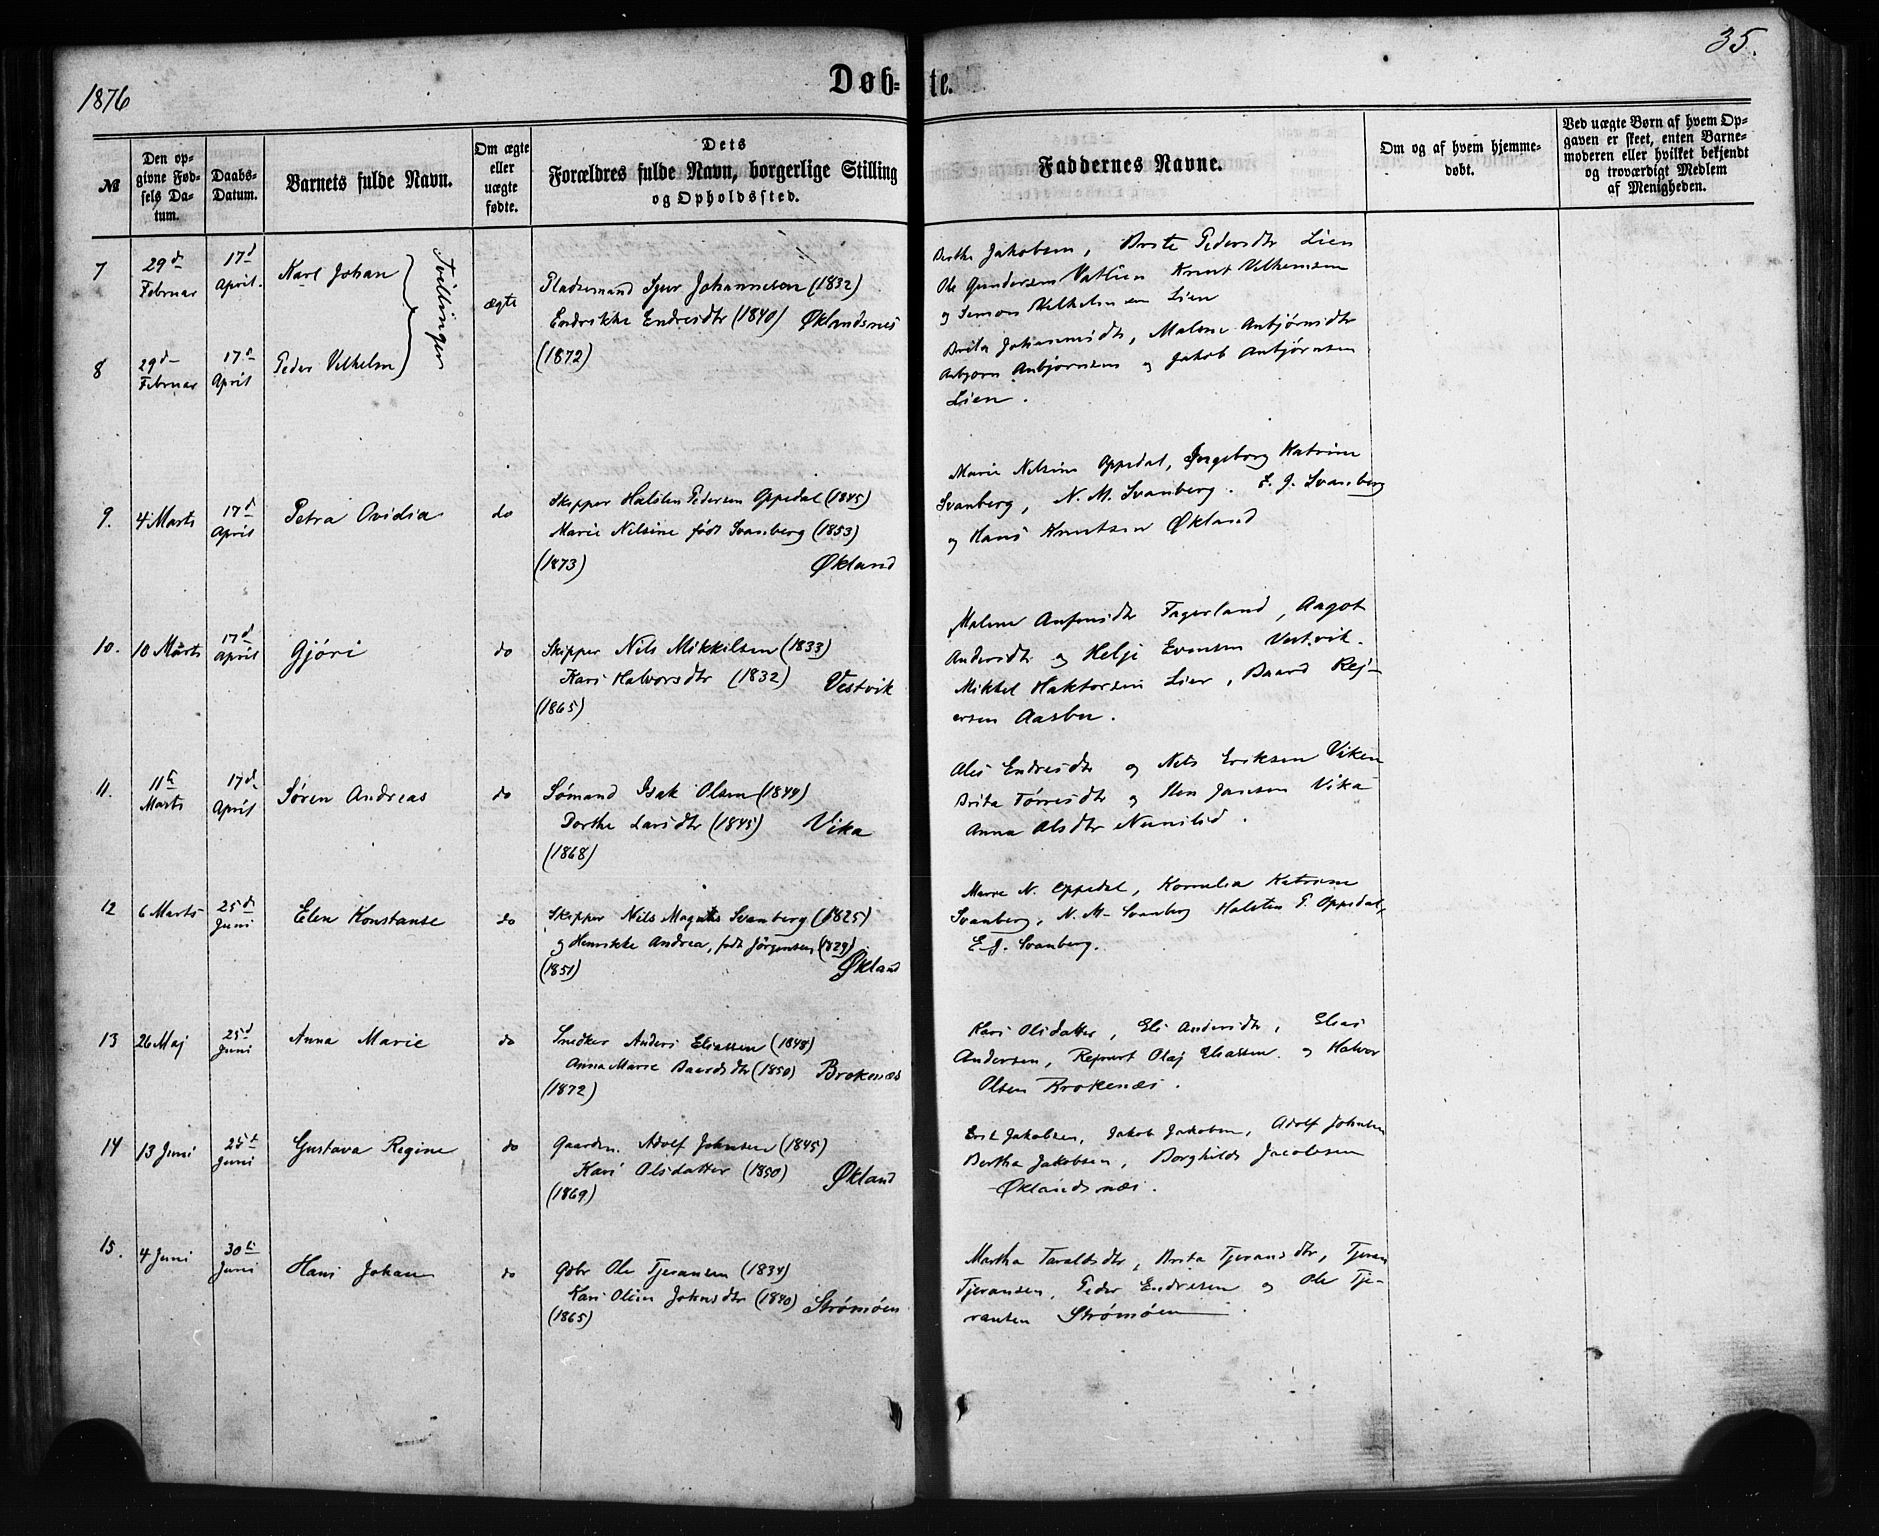 1876
Døb-
te.
35.
№
Den op-
givne Fød-
sels Da-
tum.
Daabs-
Datum.
Barnets fulde Navn.
Om ægte
eller
uægte
fødte.
Dets
Forældres fulde Navn, borgerlige Stilling
og Opholdssted.
Faddernes Navne.
Om og af hvem hjemme-
døbt.
Ved uægte Børn af hvem Op-
gaven er skeet, enten Barne-
moderen eller hvilket bekjendt
og troværdigt Medlem
af Menigheden.
7
29d
Februar
17d
April.
Karl Johan
Tvillinger
ægte
Pladsemand Sjur Johannesen (1832)
Endrikke Endresdtr (1840) Øklandsnes
(1872)
Berthe Jakobsen, Brite Pedersdtr Lien
Ole Gundersen Vatlien Knut Vilhemsen
og Simon Vilhelmsen Lien
8
29d
Februar
17d
April
Peder Vilhelm
Brita Johannesdtr, Malene Anbjørnsdtr
Anbjørn Anbjørnsen og Jakob Anbjørnsen
Lien.
9.
4 Marts
17d
April
Petra Ovidia
do
Skipper Halsten Pedersen Oppedal (1845)
Marie Nilsine født Svanberg (1853)
(1873) Økland
Marie Nilsine Oppedal, Ingeborg Katrine
Svanberg, N. M. Svanberg. E. J. Svanberg
og Hans Knutsen Økland
10.
10 Marts
17d
April
Gjøri
do
Skipper Nils Mikkilsen (1833)
Kari Halvorsdtr (1832) Vestvik
(1865)
Malene Fagerland, Aagot
Andersdtr og Helje Evensen Vestvik.
Mikkel Haktorsen Lier, Baard Rej-
ersen Aasbu.
11.
11te
Marts
17d
April
Søren Andreas
do
Sømand Isak Olsen (1844)
Dorthe Larsdtr (1845) Vika
(1868)
Ales Endresdtr og Nels Eriksen Viken
Brita Tørresdtr og Sten Jansen Vika
Anna Olsdtr
12
6 Marts
25d
Juni
Elen Konstanse
do
Skipper Nils Magnus Svanberg (1825)
og Henrikke Andrea, født Jørgensen (1829)
(1851) Økland
Marie N. Oppedal, Kornelia Katrine
Svanberg, N. M. Svanberg Halsten P. Oppedal,
E. J. Svanberg.
13
26 Maj
25d
Juni
Anna Marie
do
Snedker Anders Eliassen (1848)
Anna Marie Baardsdtr (1850) Brokenæs
(1872)
Kari Olsdatter, Eli Andersdtr, Elias
Andersen, Reinert Olaj Eliassen og Halvor
Olsen Brokenæs.
14
13 Juni
25d
Juni
Gustava Regine
do
Gaardm. Adolf Johnsen (1845)
Kari Olsdatter (1850) Økland
(1869)
Erik Jakobsen, Jakob Jakobsen, Adolf Johnsen
Bertha Jakobsen, Borghilds Jacobsen
Øklandsnæs.
15.
4 Juni
30te
Juni
Hans Johan
do
Gbr Ole Tjeransen (1834)
Kari Oline Johnsdtr (1840) Strømøen
(1865)
Martha Taraldsdtr, Brita Tjeransdtr, Tjeran
Tjeransen, Peder Endresen og Ole Tje-
ransen Strømøen.